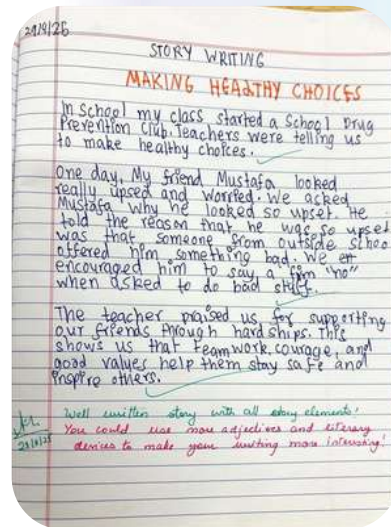 29/8/25
STORY WRITING
MAKING HEALTHY CHOICES
In school my class started a School Drug
Prevention Club. Teachers were telling us
to make healthy choices.
One day, My friend Mustafa looked
really upsed and worried. We asked
Mustafa why he looked so upset. He
told the reason that he was so upset
was that someone from outside school
offered him something bad. We en
encouraged him to say a fim "no"
when asked to do bad stuff.
The teacher praised us for supporting
our friends through hardships. This
shows us that teamwork, courage, and
good values help them stay safe and
inspire others.
Well written story with all story elements!
You could use more adjectives and literary
devices to make your writing more interesting!
29/8/25